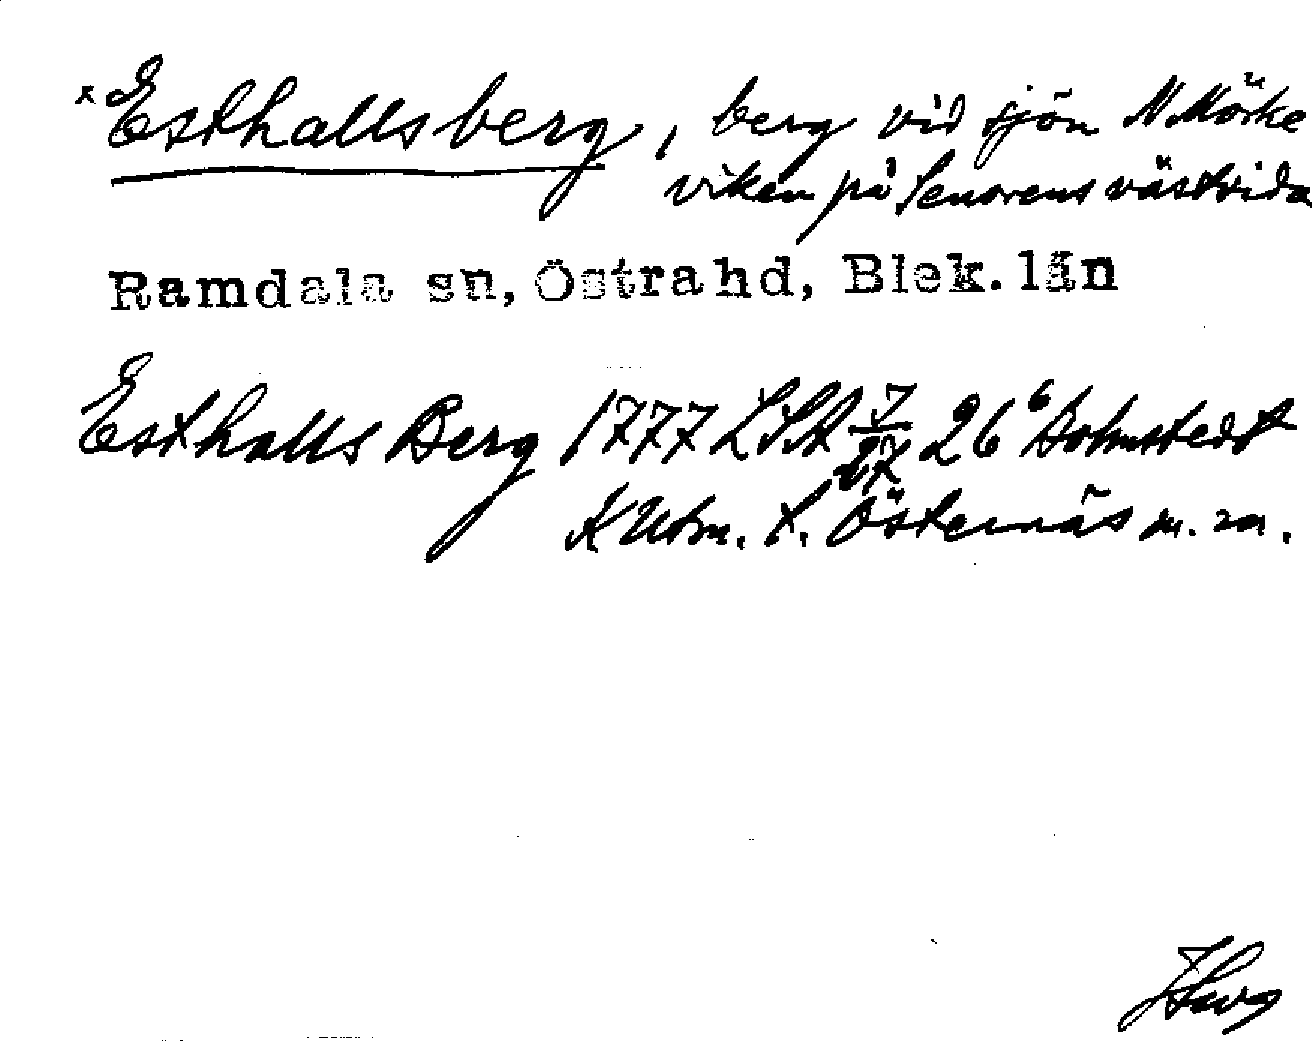 x Esthallsberg, berg vid sjön N. Mörke
viken på Senorens västsida
Ramdala sn, Östra hd, Blek. län
Esthalls Berg 1777 LSA 7/27 26
K Utm. t. Östernäs m. m.